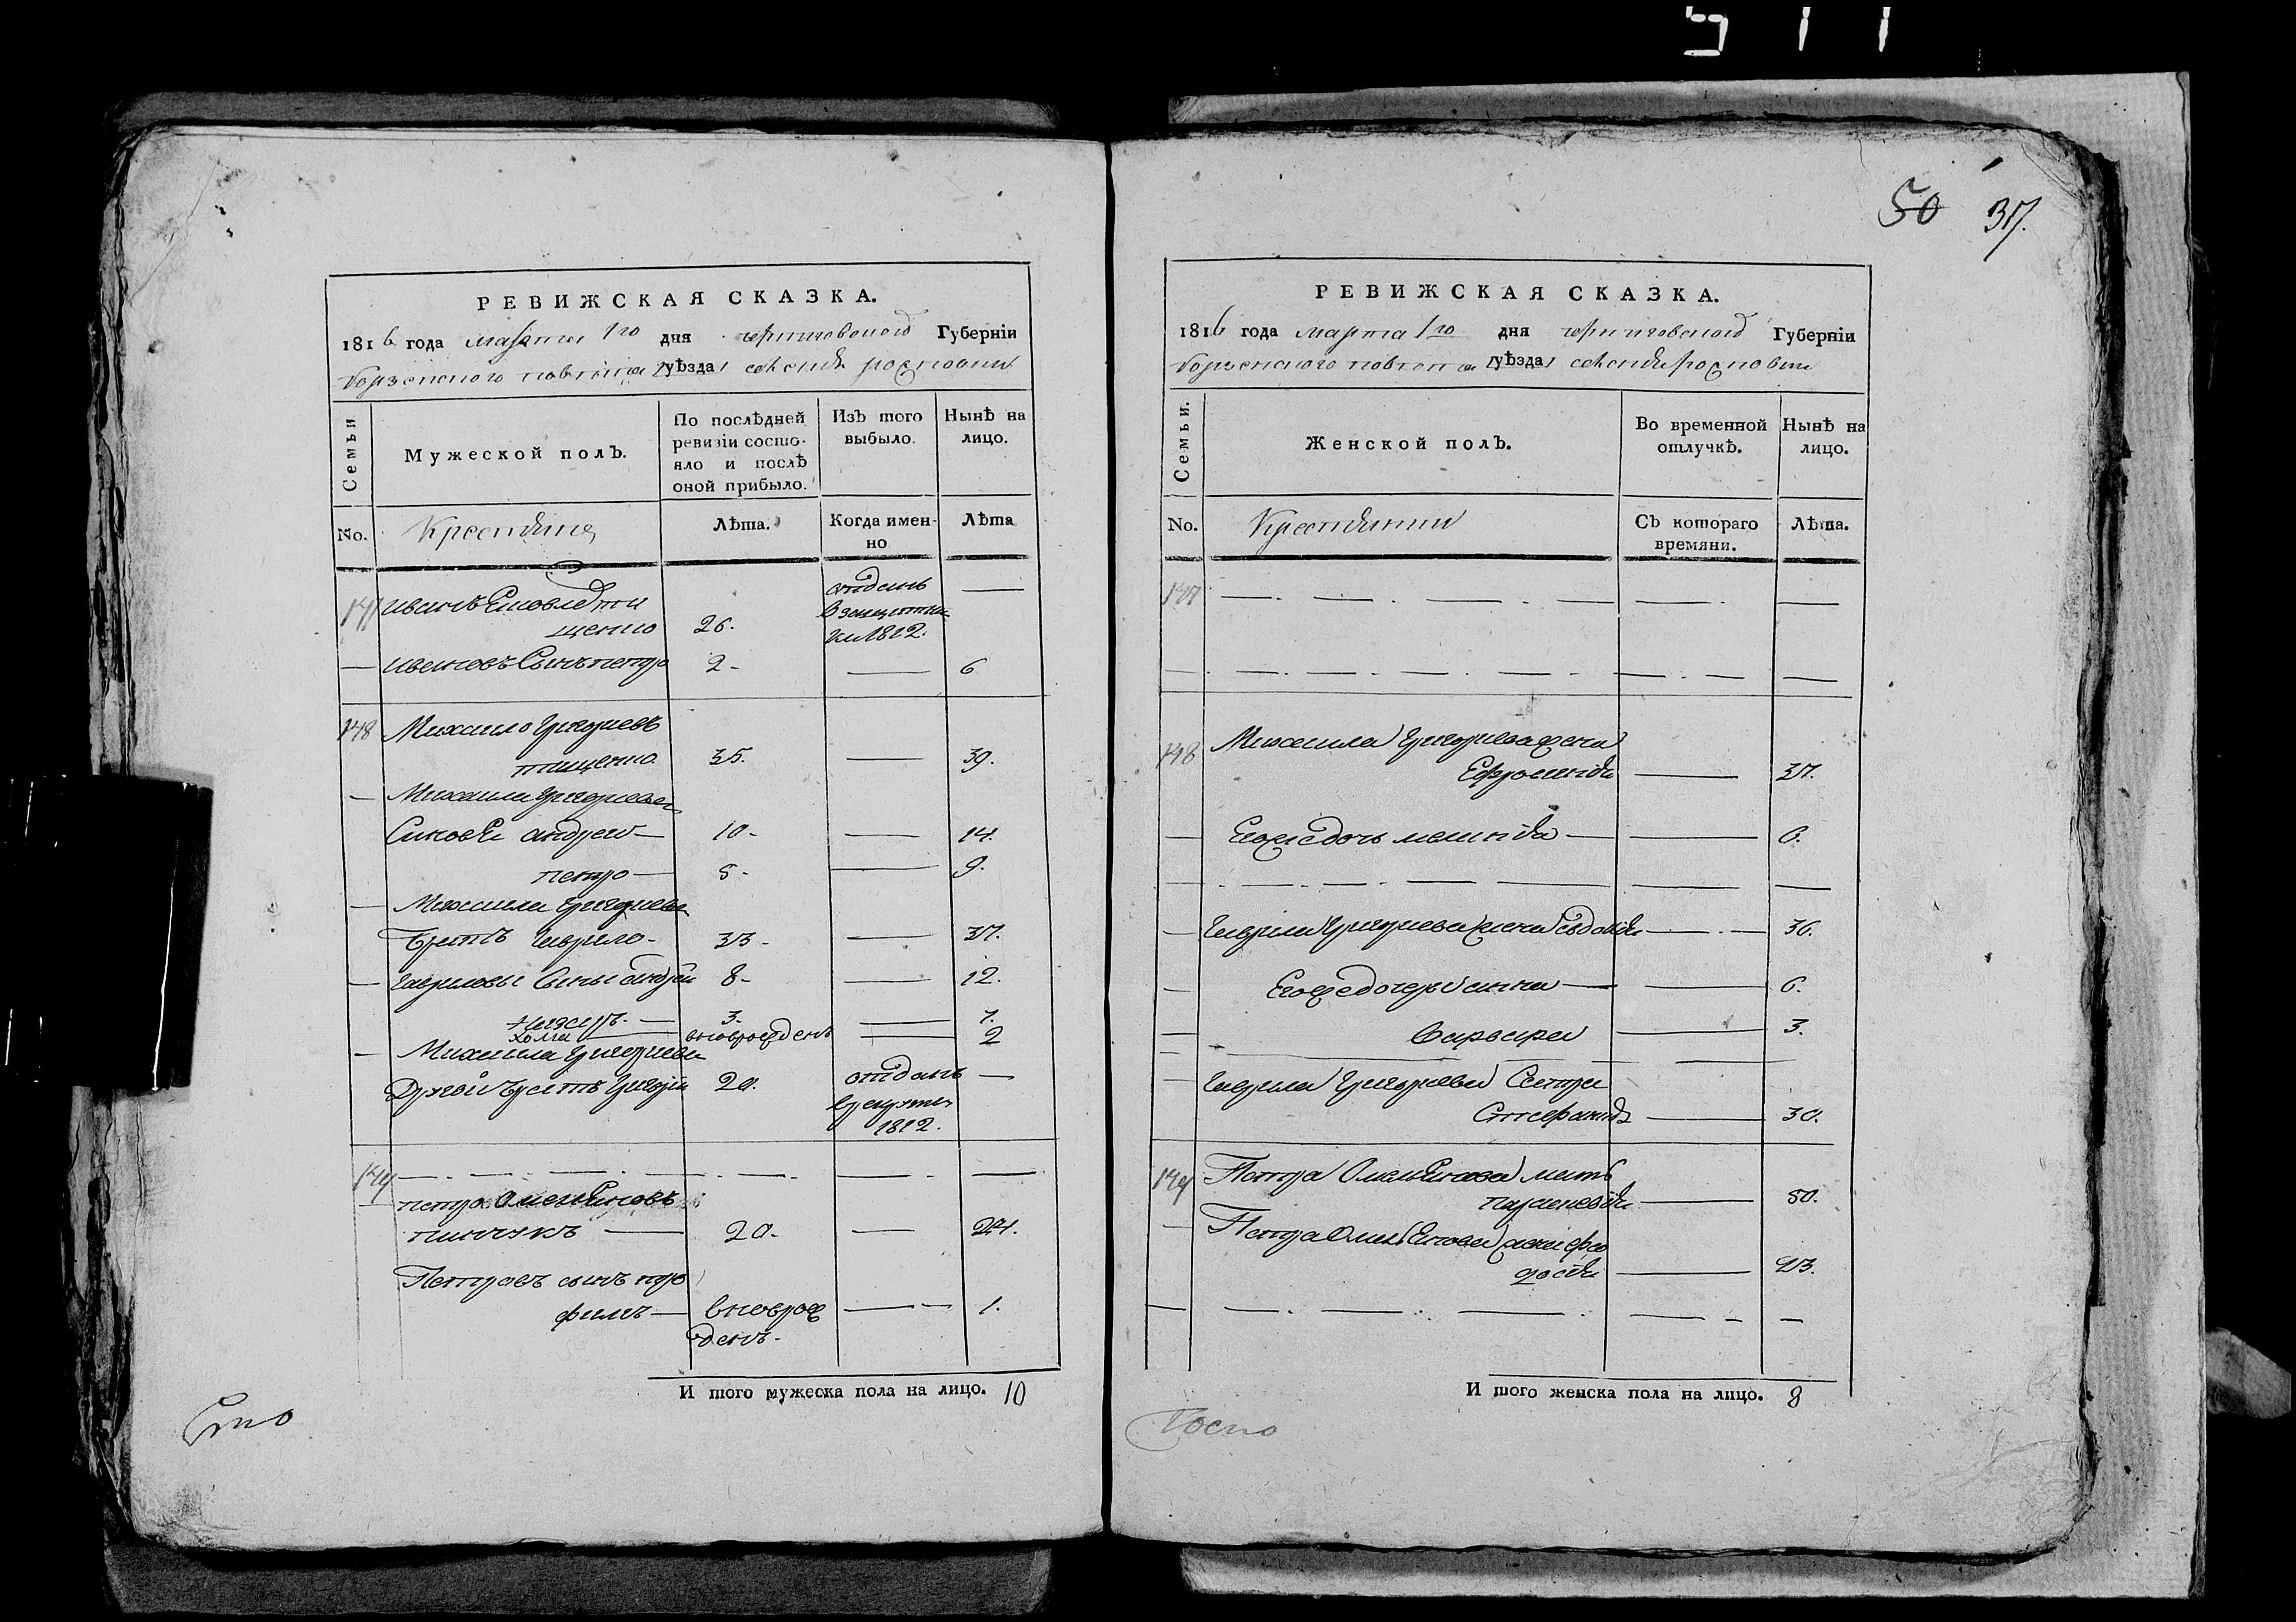 511
50 37.
РЕВИЖСКАЯ СКАЗКА.
1816 года марта 1го дня черниговской Губерніи
Борзенского повета уѣзда селения
Семьи
Мужеской полъ.
По послѣдней ревизіи состояло и послѣ оной прибыло.
Изъ того выбыло.
Нынѣ на лицо.
No. Крестяне
Лѣта.
Когда именно
Лѣта
147 иванъ Яковлевъ ти
щенко 26. отданъ в 1812. —
— ивановъ Сынъ петро 2 - — 6
148 Михаило Григориевъ
тищенко. 35. — 39.
— Михаила Григориева
Синовья андрей — 10 - — 14.
петро — 5 - — 9.
— Михаила григориева
Братъ гаврило - 33 - — 37.
— гавриловы Сыны андрей 8 - — 12.
назаръ. — 3. — 7.
хома — вновророжденъ — 2
— Михаила Григориева
Другой братъ Григорій 20. отданъ в рекруты 1812. —
149 — . — . — . — . — . — —
петро Омельяновъ
— 20. — 24.
Петровъ сынъ тро
фимъ — вноврож
денъ. — 1.
И того мужеска пола на лицо. 10
РЕВИЖСКАЯ СКАЗКА.
1816 года марта 1го дня черниговской Губерніи
Борзенского повета уѣзда селения
Семьи.
Женской полъ.
Во временной отлучкѣ.
Нынѣ на лицо.
No. Крестянки
Съ котораго времяни.
Лѣта.
147 — . — . — . —
148 Михаила Григориева жена
Ефросиния — 37.
— Егожедочь мелания — — 6.
— Гаврила Григориева жена Евдокия — . — 36.
— Егожедочеры анна — — 6.
— варвара — 3.
— Гаврила Григориева Сестра
Стефанида — 30.
149 Петра Омельянова мать
параскевия — 50.
— Петра Омельянова жена фео
досия — 23.
И того женска пола на лицо. 8